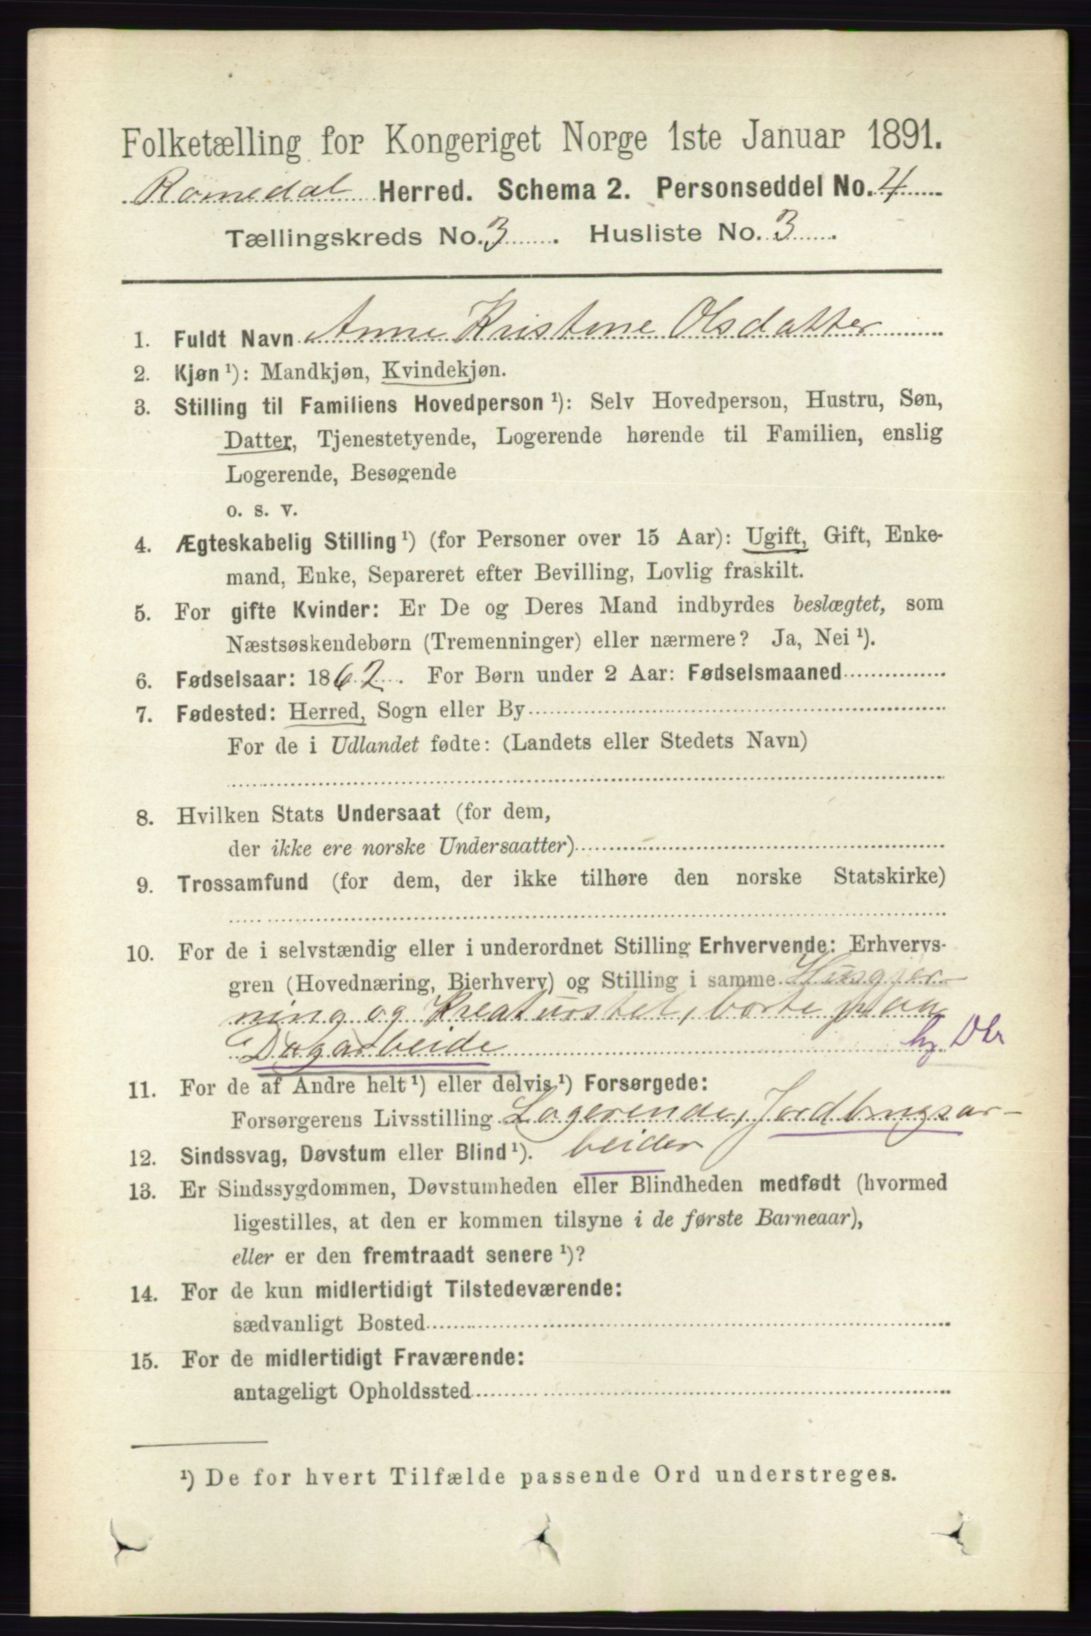 Folketælling for Kongeriget Norge 1ste Januar 1891.
Romedal Herred. Schema 2. Personseddel No. 4
Tællingskreds No. 3. Husliste No. 3.
1. Fuldt Navn Anne Kristine Olsdatter
2. Kjøn ¹): Mandkjøn, Kvindekjøn.
3. Stilling til Familiens Hovedperson ¹): Selv Hovedperson, Hustru, Søn,
Datter, Tjenestetyende, Logerende hørende til Familien, enslig
Logerende, Besøgende
o. s. v.
4. Ægteskabelig Stilling ¹) (for Personer over 15 Aar): Ugift, Gift, Enke-
mand, Enke, Separeret efter Bevilling, Lovlig fraskilt.
5. For gifte Kvinder: Er De og Deres Mand indbyrdes beslægtet, som
Næstsøskendebørn (Tremenninger) eller nærmere? Ja, Nei ¹).
6. Fødselsaar: 1862. For Børn under 2 Aar: Fødselsmaaned
7. Fødested: Herred, Sogn eller By
For de i Udlandet fødte: (Landets eller Stedets Navn)
8. Hvilken Stats Undersaat (for dem,
der ikke ere norske Undersaatter)
9. Trossamfund (for dem, der ikke tilhøre den norske Statskirke)
10. For de i selvstændig eller i underordnet Stilling Erhvervende: Erhvervs-
gren (Hovednæring, Bierhverv) og Stilling i samme Husgjer-
ning og Kreaturstel, borte paa
Dagarbeide
11. For de af Andre helt ¹) eller delvis ¹) Forsørgede:
Forsørgerens Livsstilling Logerende, Jordbrugsar-
beider
12. Sindssvag, Døvstum eller Blind ¹).
13. Er Sindssygdommen, Døvstumheden eller Blindheden medfødt (hvormed
ligestilles, at den er kommen tilsyne i de første Barneaar),
eller er den fremtraadt senere ¹)?
14. For de kun midlertidigt Tilstedeværende:
sædvanligt Bosted
15. For de midlertidigt Fraværende:
antageligt Opholdssted
¹) De for hvert Tilfælde passende Ord understreges.